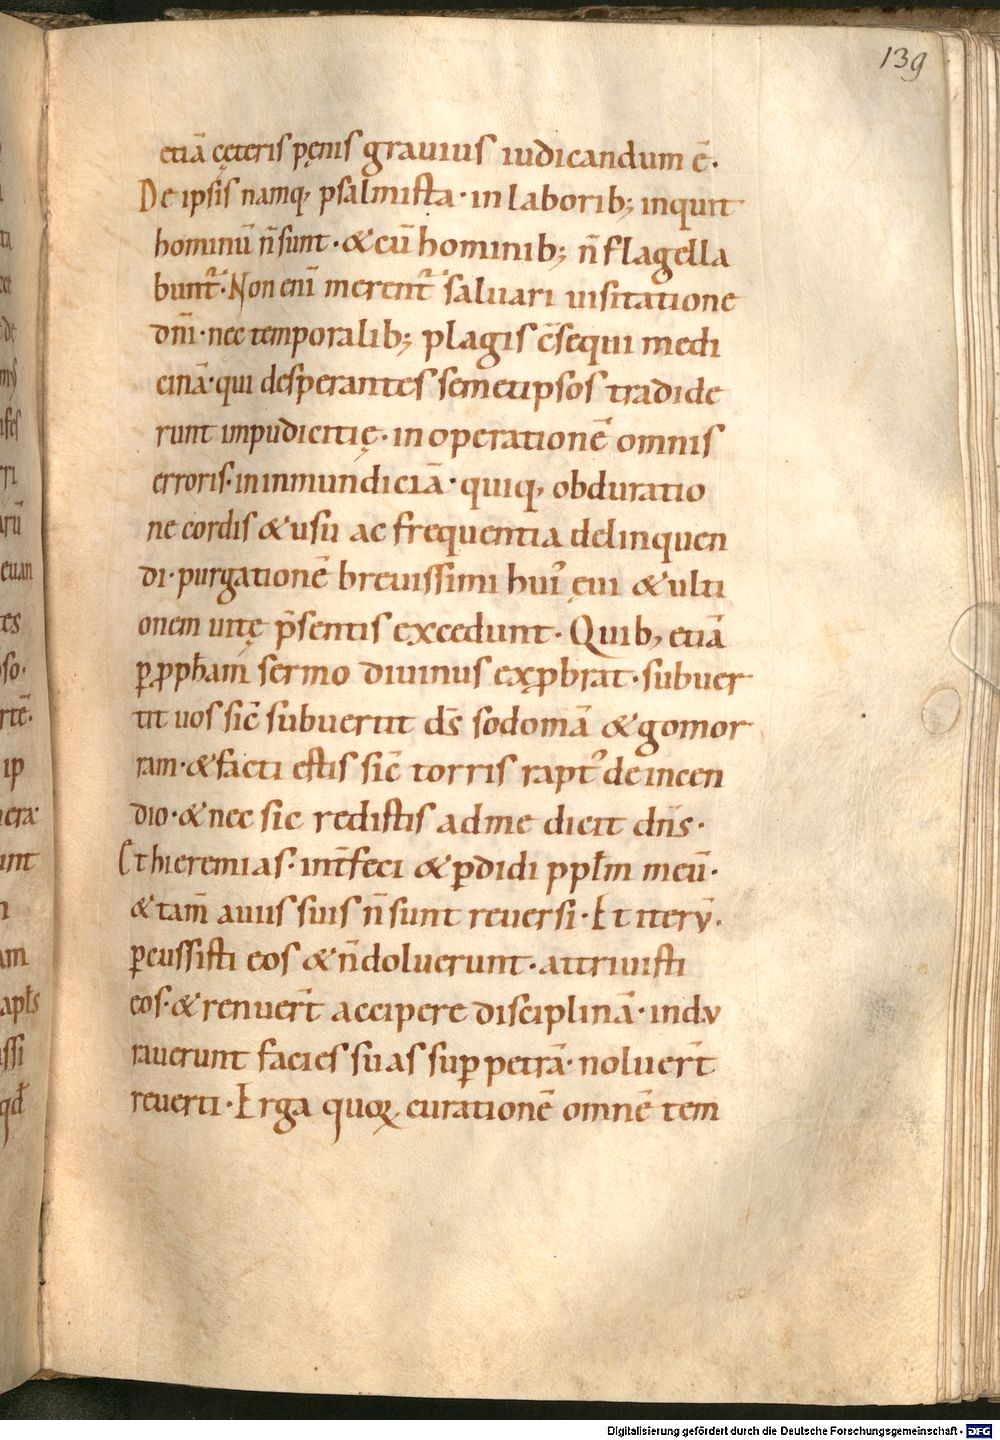 139
etiā cęteris pęnis grauius iudicandum ē.
De ipsis namq; psalmista· in laborib; inquit
hominū n̄ sunt·&cū hominib; n̄ flagella
bunt᷑·Non enī merent᷑ saluari uisitatione
dn̄i·nec temporalib; plagis c̄sequi medi
cinā·qui desperantes semetipsos tradide
runt impudicitię·in operationē omnis
erroris·in inmundiciā·quiq; obduratio
ne cordis & usu ac frequentia delinquen
di·purgationē breuissimi hui᷒ ęui & ulti
onem uitę p̄sentis excedunt· Quib; etiā
ꝑ ꝓpħam̄ sermo diuinus exꝓbrat·subuer
tit uos sic̄ subuertit ds̄ sodomā &gomor
ram·&facti estis sic̄ torris rapt᷒ de incen
dio·& nec sic redistis ad me dicit dn̄s·
Et hieremias·int̄feci & ꝑdidi ppłm meū·
& tam̄ a uiis suis n̄ sunt reuersi·Et iterv̄·
ꝑcussisti eos & n̄ doluerunt·attriuisti
eos·& renuer̄t accipere disciplinā·indv
rauerunt facies suas suꝑ petrā·noluer̄t
reuerti·Erga quoꝝ curationē omnē tem
Digitalisierung gefördert durch die Deutsche Forschungsgemeinschaft - DFG